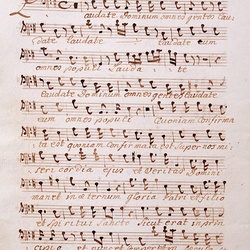 Laudate Dominum omnes gentes Lau=
date Laudate Laudate eum
omnes populi Lauda te
Laudate Dominum omnes gentes Laudate
eum omnes populi Quoniam Confirma
ta est quoniam Confirmata est Super nos mi
seri cordia ejus et Veritas Domini
manet in æternum gloria Patri et filio
et Spiritui Sancto Sicut erat in prin
cipio et nunc et semper